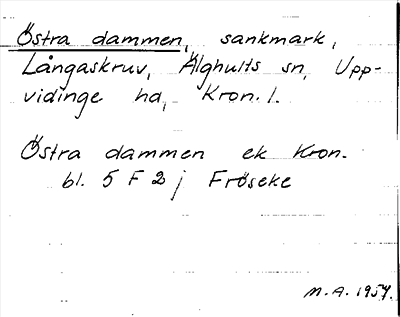 Östra dammen, sankmark,
Långaskruv, Älghults sn, Upp-
vidinge hd, Kron. l.
Östra dammen ek Kron.
bl. 5 F 2 j Fröseke
M.A. 1957.